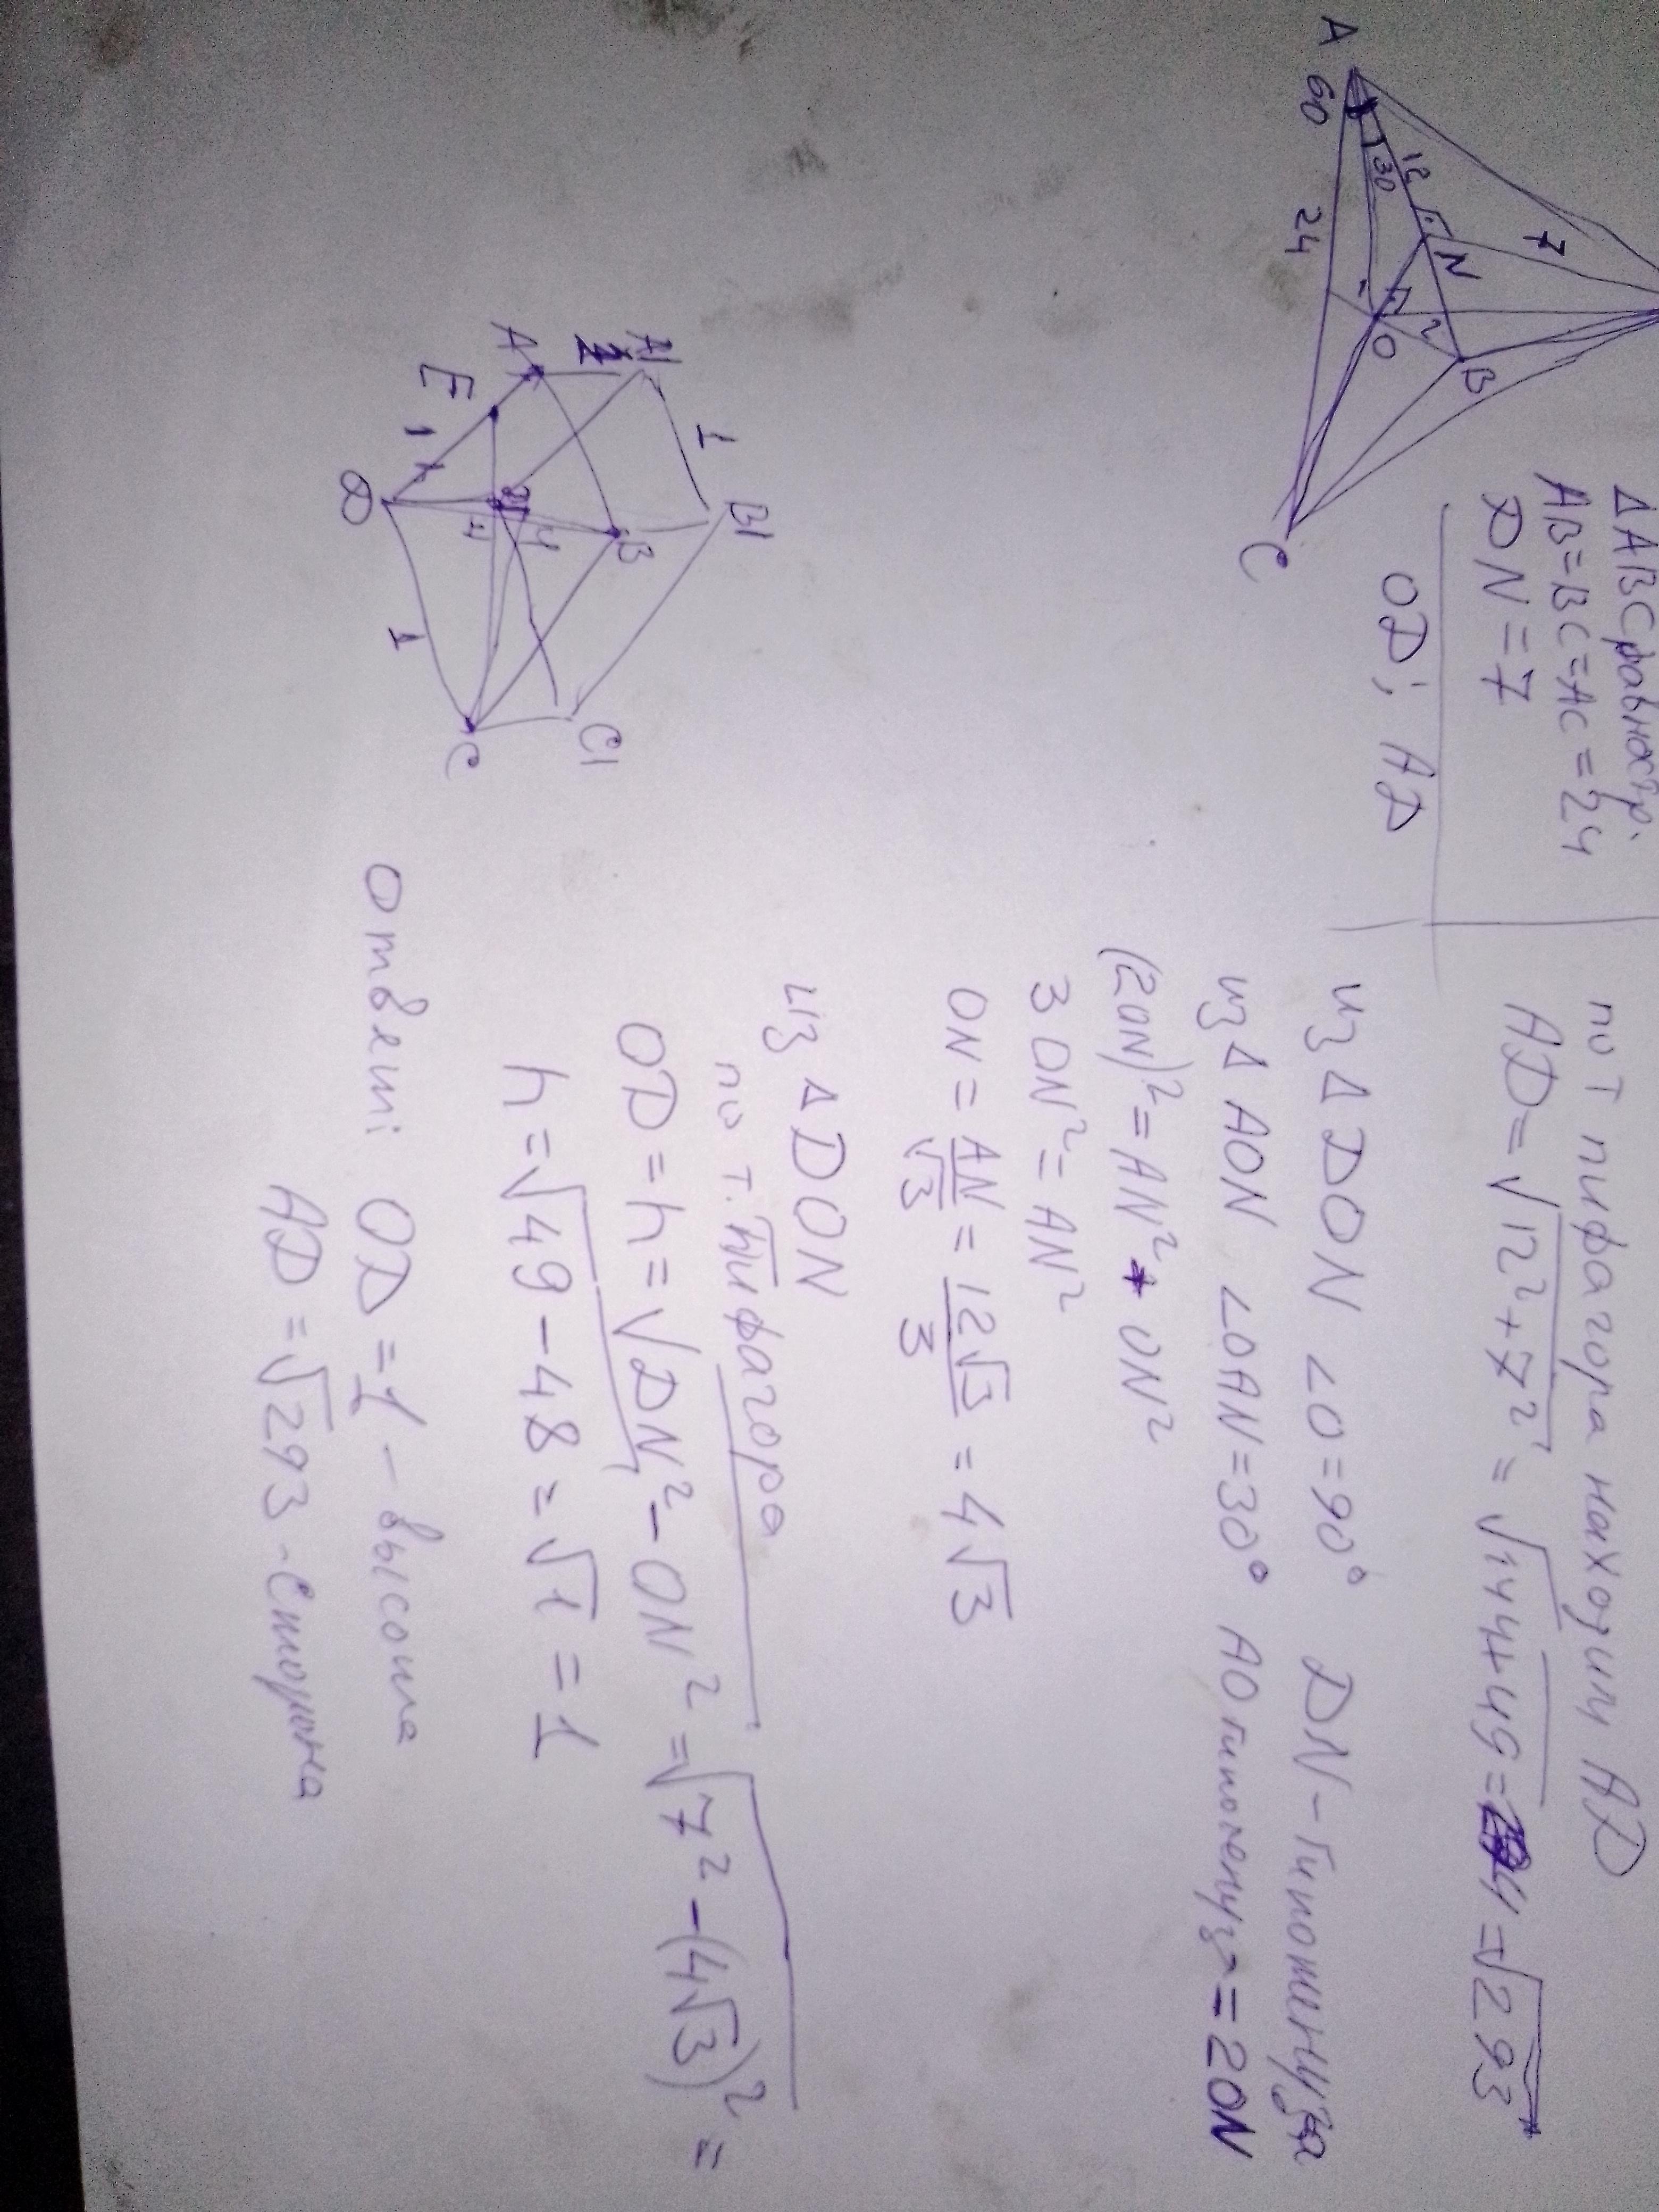 A
60
30
12
N
7
24
O
2
B
C
Δ ABC равностр.
AB=BC=AC=24
DN=7
OD; AD
по т пифагора находим AD
AD=√12²+7²=√144+49= =√293
из Δ DON ∠O=90° DN-гипотенуза
из Δ AON ∠OAN=30° AO гипотенуз =2ON
(2ON)²=AN²+ ON²
3 ON²=AN²
ON = AN/√3 = 12√3/3 = 4√3
из Δ DON
по т. Пифагора
OD=h=√DN²-ON²=√7²-(4√3)²=
h=√49-48=√1=1
Ответ: OD=1 - высота
AD=√293 - сторона
A1
B1
1
A
E
1
D
B
1
C1
C